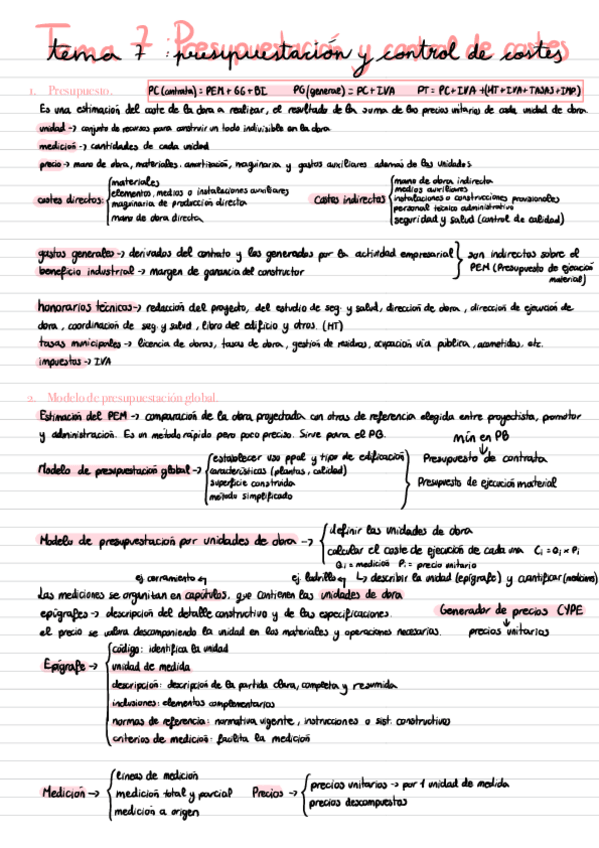 Tema 7: Presupuestación y control de costes
1. Presupuesto.
PC (contrata) = PEM + GG + BI   PG (general) = PC + IVA   PT = PC + IVA + (HT + IVA + TASAS + IMP.)
Es una estimación del coste de la obra a realizar, el resultado de la suma de los precios unitarios de cada unidad de obra.
unidad → conjunto de recursos para construir un todo indivisible en la obra
medición → cantidades de cada unidad
precio → mano de obra, materiales, amortización, maquinaria y gastos auxiliares además de las unidades.
costes directos:
materiales
elementos, medios o instalaciones auxiliares
maquinaria de producción directa
mano de obra directa
Costes indirectos
mano de obra indirecta
medios auxiliares
instalaciones o construcciones provisionales
personal técnico administrativo
seguridad y salud (control de calidad)
gastos generales → derivados del contrato y los generados por la actividad empresarial
beneficio industrial → margen de ganancia del constructor
son indirectos sobre el
PEM (Presupuesto de ejecución
material)
honorarios técnicos → redacción del proyecto, del estudio de seg. y salud, dirección de obra, dirección de ejecución de
obra, coordinación de seg. y salud, libro del edificio y otros. (HT)
tasas municipales → licencia de obras, tasas de obra, gestión de residuos, ocupación vía pública, acometidas, etc.
impuestos → IVA
2. Modelo de presupuestación global.
Estimación del PEM → comparación de la obra proyectada con otras de referencia elegida entre proyectista, promotor
y administración. Es un método rápido pero poco preciso. Sirve para el PB.
mín en PB
↓
Modelo de presupuestación global →
establecer uso ppal y tipo de edificación
características (plantas, calidad)
superficie construida
método simplificado
Presupuesto de contrata
Presupuesto de ejecución material
Modelo de presupuestación por unidades de obra →
definir las unidades de obra
calcular el coste de ejecución de cada una Ci = Qi × Pi
Qi = medición Pi = precio unitario
ej. cerramiento   ej. ladrillo   ↳ describir la unidad (epígrafe) y cuantificar (mediciones)
Las mediciones se organizan en capítulos, que contienen las unidades de obra
epígrafes → descripción del detalle constructivo y de las especificaciones.
Generador de precios CYPE
↓
el precio se valora descomponiendo la unidad en los materiales y operaciones necesarias.
precios unitarios
Epígrafe →
código: identifica la unidad
unidad de medida
descripción: descripción de la partida clara, completa y resumida
inclusiones: elementos complementarios
normas de referencia: normativa vigente, instrucciones o sist. constructivos
criterios de medición: facilita la medición
Medición →
líneas de medición
medición total y parcial
medición a origen
Precios →
precios unitarios → por 1 unidad de medida
precios descompuestos